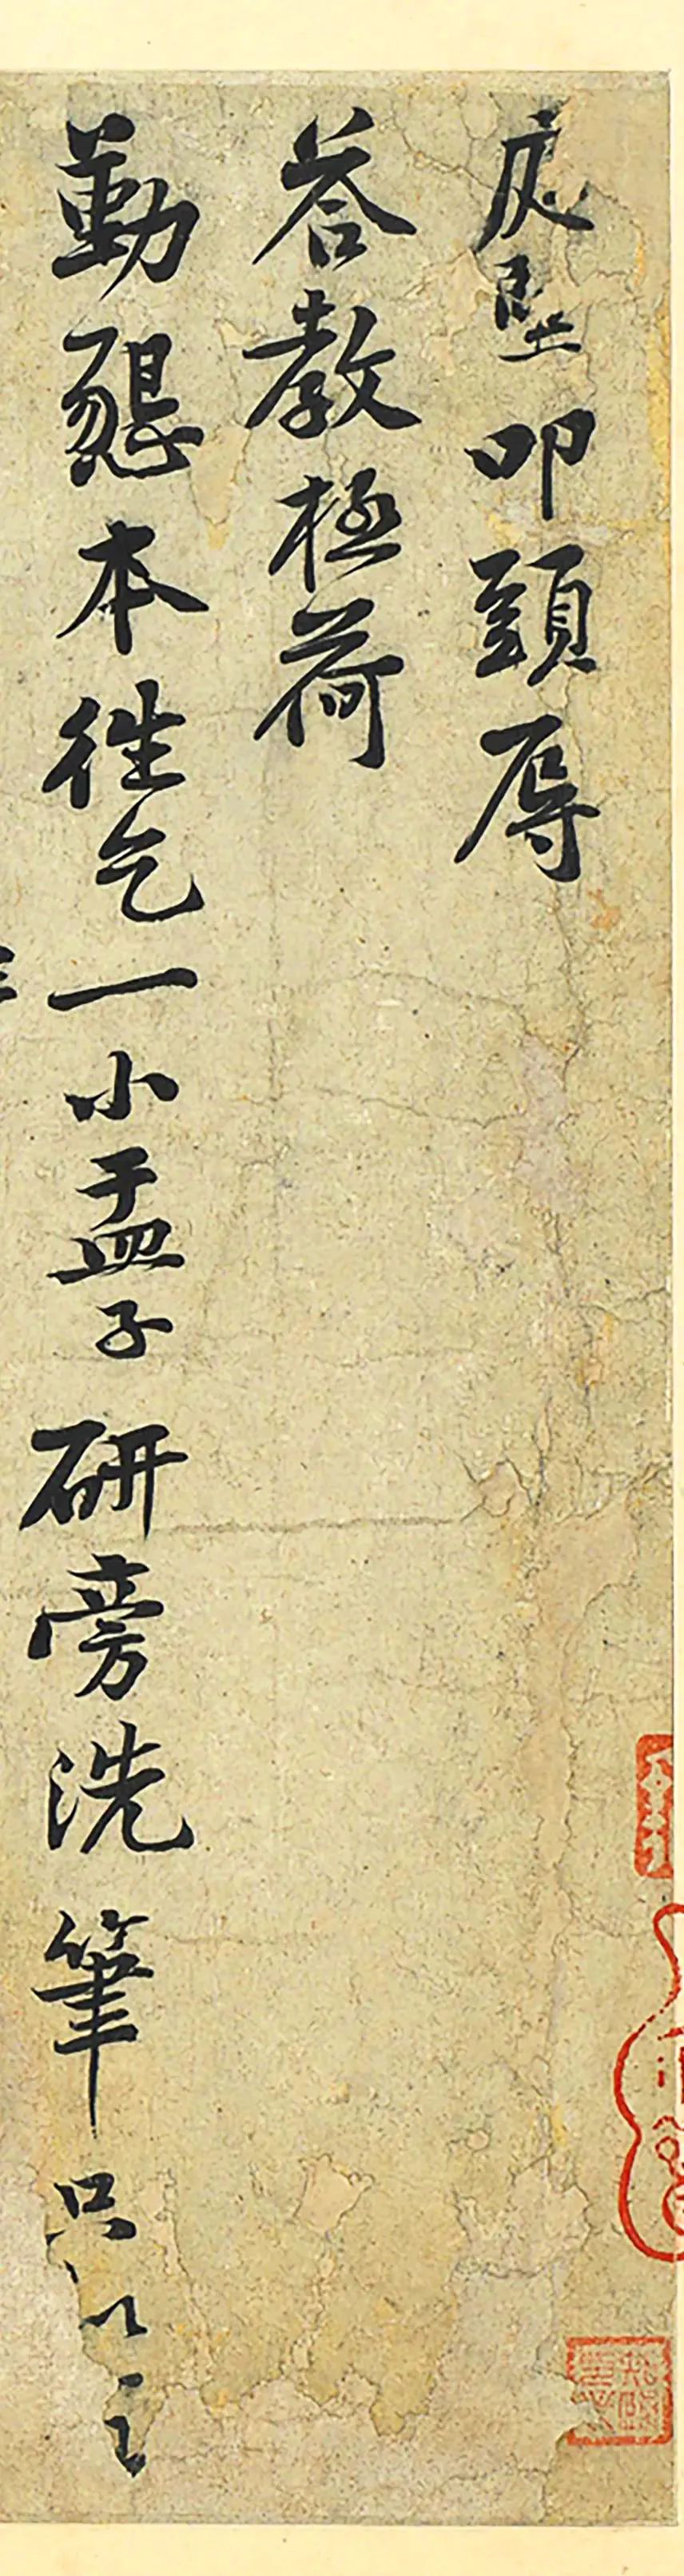 庭堅叩頭辱
荅教極荷
勤懇本往乞一小盂子研旁洗筆只以主